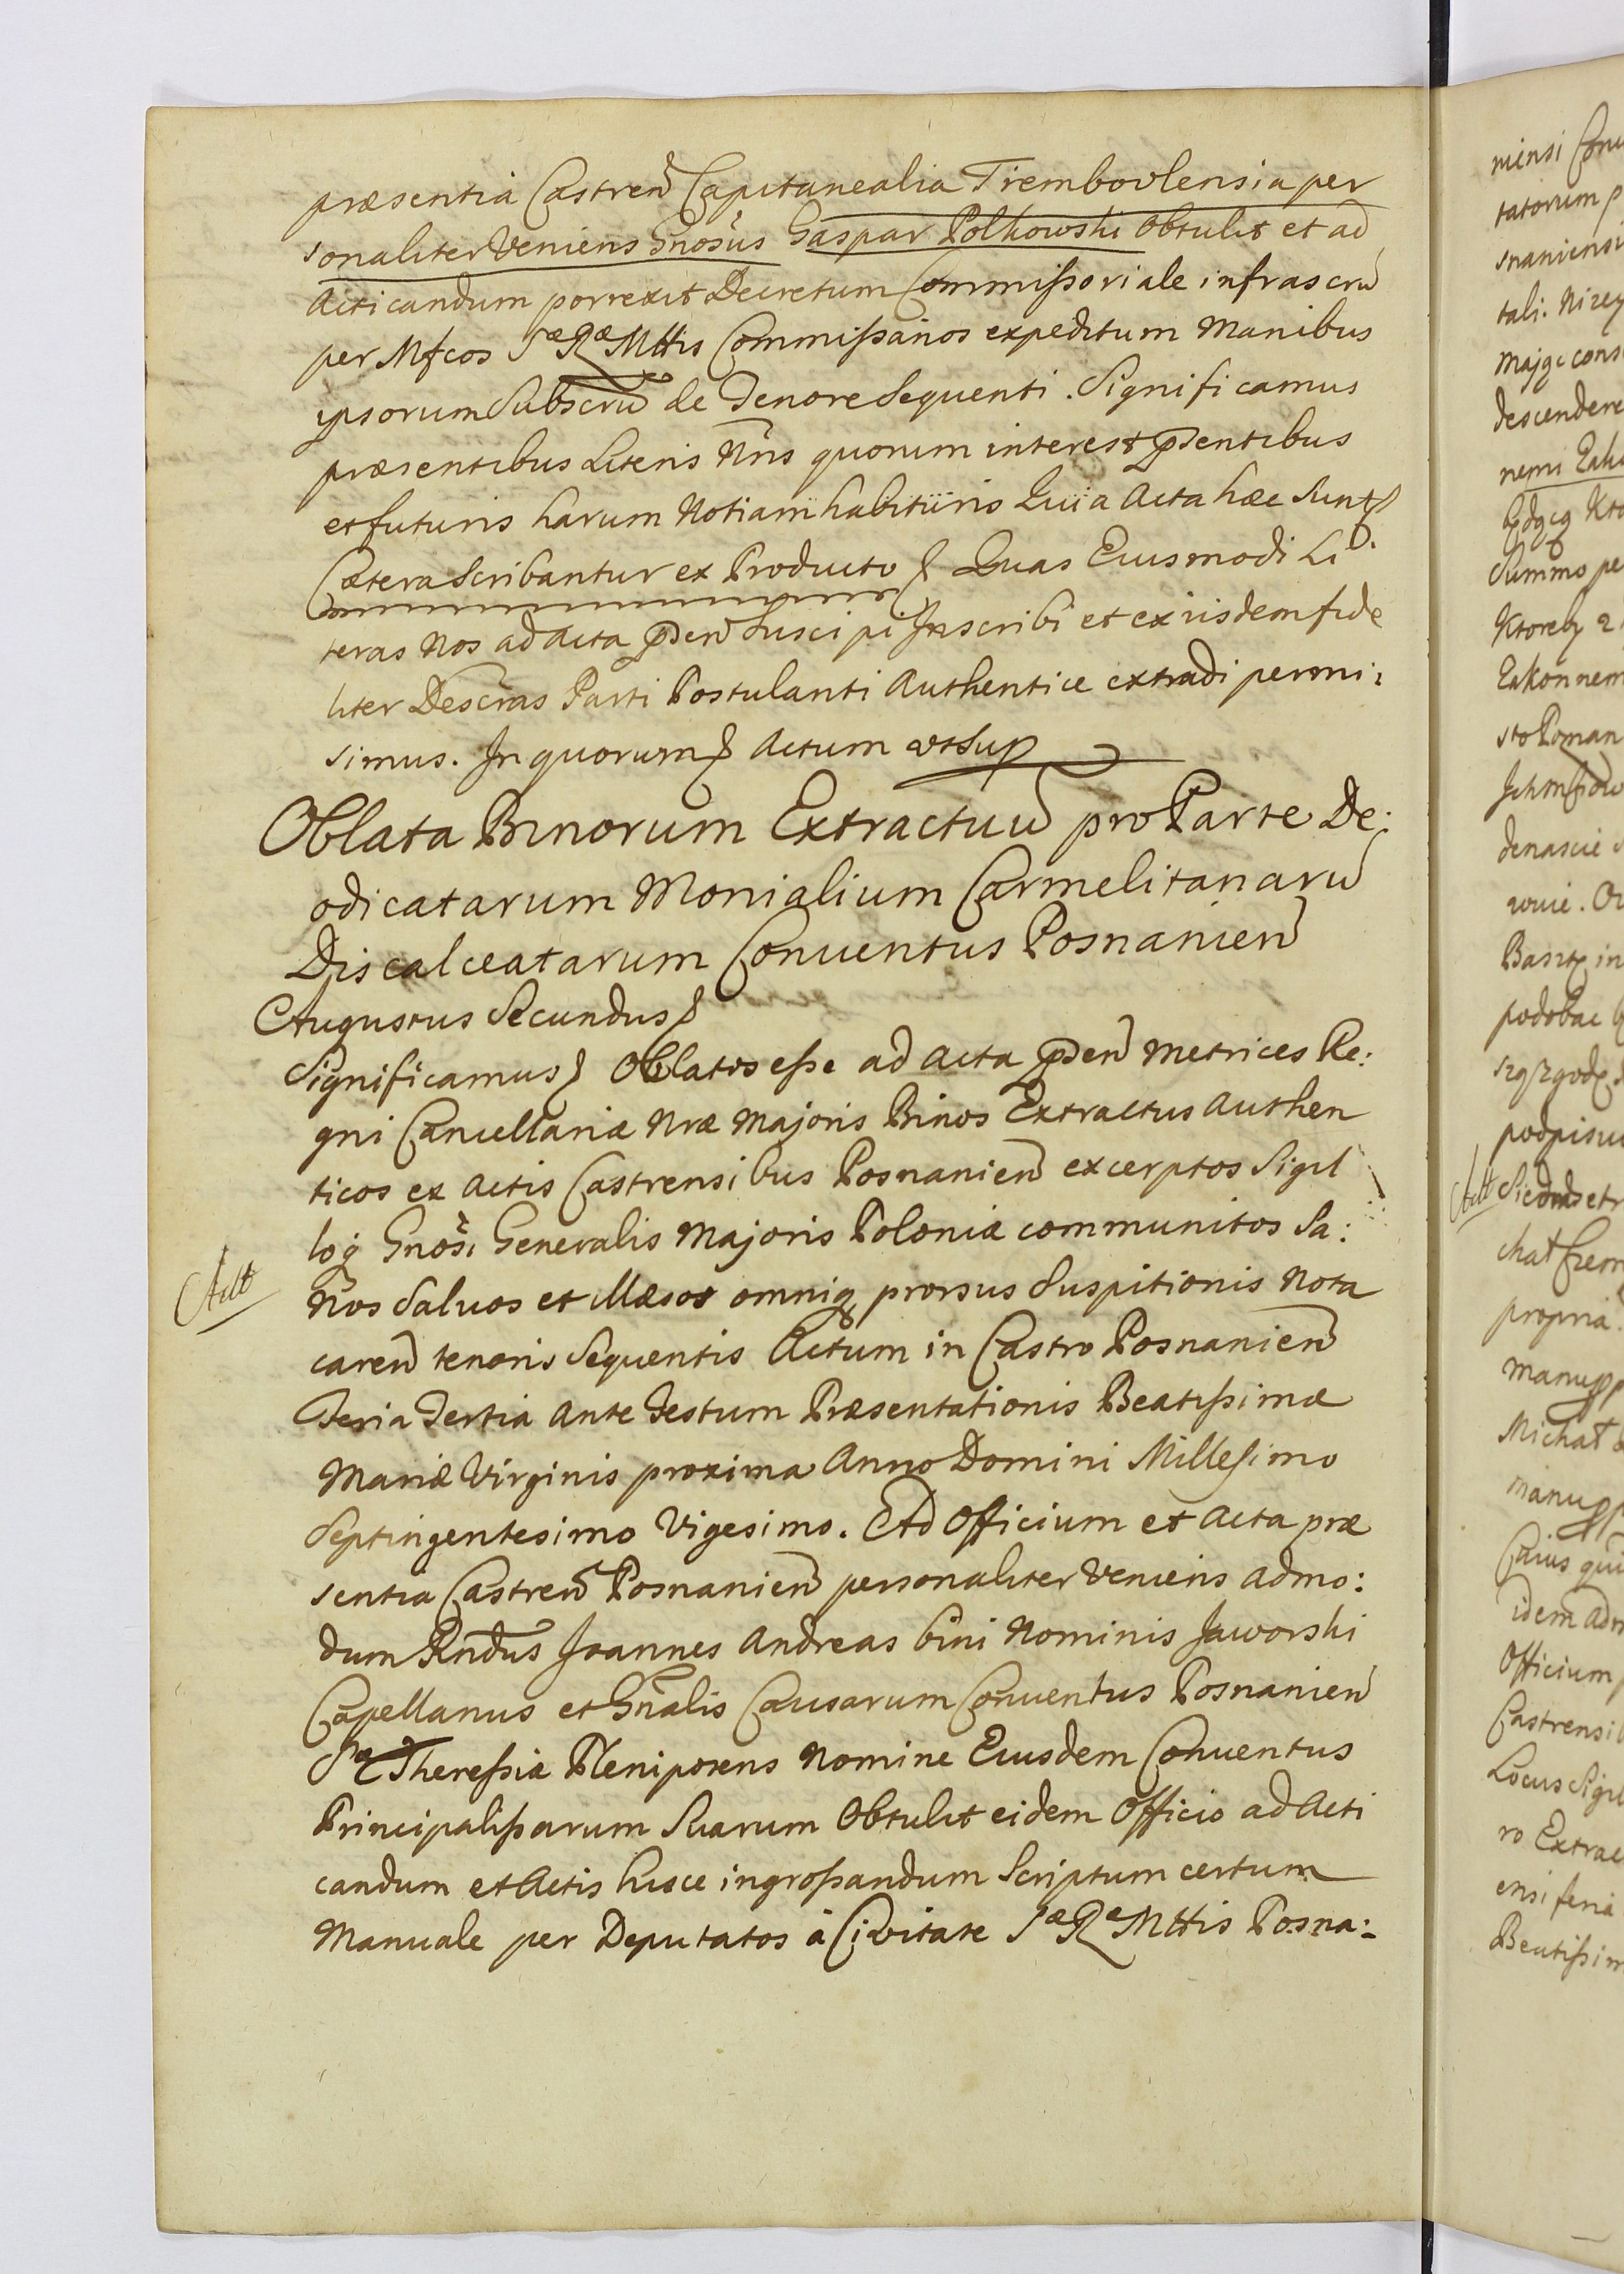 præsentia Castren̄ Capitanealia Trembovlensia per
sonaliter Veniens Gnosūs Gaspar Polkowski Obtulit et ad
Acticandum porrexit Decretum Commissoriale infrascrū
per Mfcos Sæ Ræ Mttis Commissarios expeditum Manibus
ipsorum Subscrū de Tenore Sequenti. Significamus
præsentibus Literis Nr̄is quorum interest p̄sentibus
et futuris harum Notiam habituris Quia Acta hæc Sunt
Cætera Scribantur ex Producto Quas Eiusmodi Li
teras Nos ad Acta p̄sen̄ Suscipi Inscribi et ex iisdem fide
liter Descr̄as Parti Postulanti Authentice extradi permi:
simus. In quorum Actum ut Sup
Oblata Binorum Extractuū pro Parte De:
odicatarum Monialium Carmelitanarū
Discalceatarum Conuentus Posnanien̄
Augustus Secundus
Significamus Oblatos esse ad Acta p̄sen̄ Metrices Re:
gni Cancellariæ Nræ Majoris Binos Extractus Authen
ticos ex Actis Castrensibus Posnanien̄ excerptos Sigil
loq̄ Gnosi Generalis Majoris Poloniæ communitos Sa:
Nos Saluos et illæsos omniq̨ prorsus Suspitionis Nota
caren̄ tenoris Sequentis Actum in Castro Posnanien̄
Feria Tertia Ante Festum Præsentationis Beatissimæ
Mariæ Virginis proxima Anno Domini Millesimo
Septingentesimo Vigesimo. Ad Officium et Acta præ
sentia Castren̄ Posnanien̄ personaliter Veniens admo:
dum Rn̄dus Joannes Andreas bini Nominis Jaworski
Capellanus et Gn̄alis Causarum Conuentus Posnanien̄
Sæ Theressiæ Plenipotens Nomine Eiusdem Conuentus
Principalissarum Suarum Obtulit eidem Officio ad Acti
candum et Actis hisce ingrossandum Scriptum certum
Manuale per Deputatos à Civitate Sæ Ræ Mttis Posna: